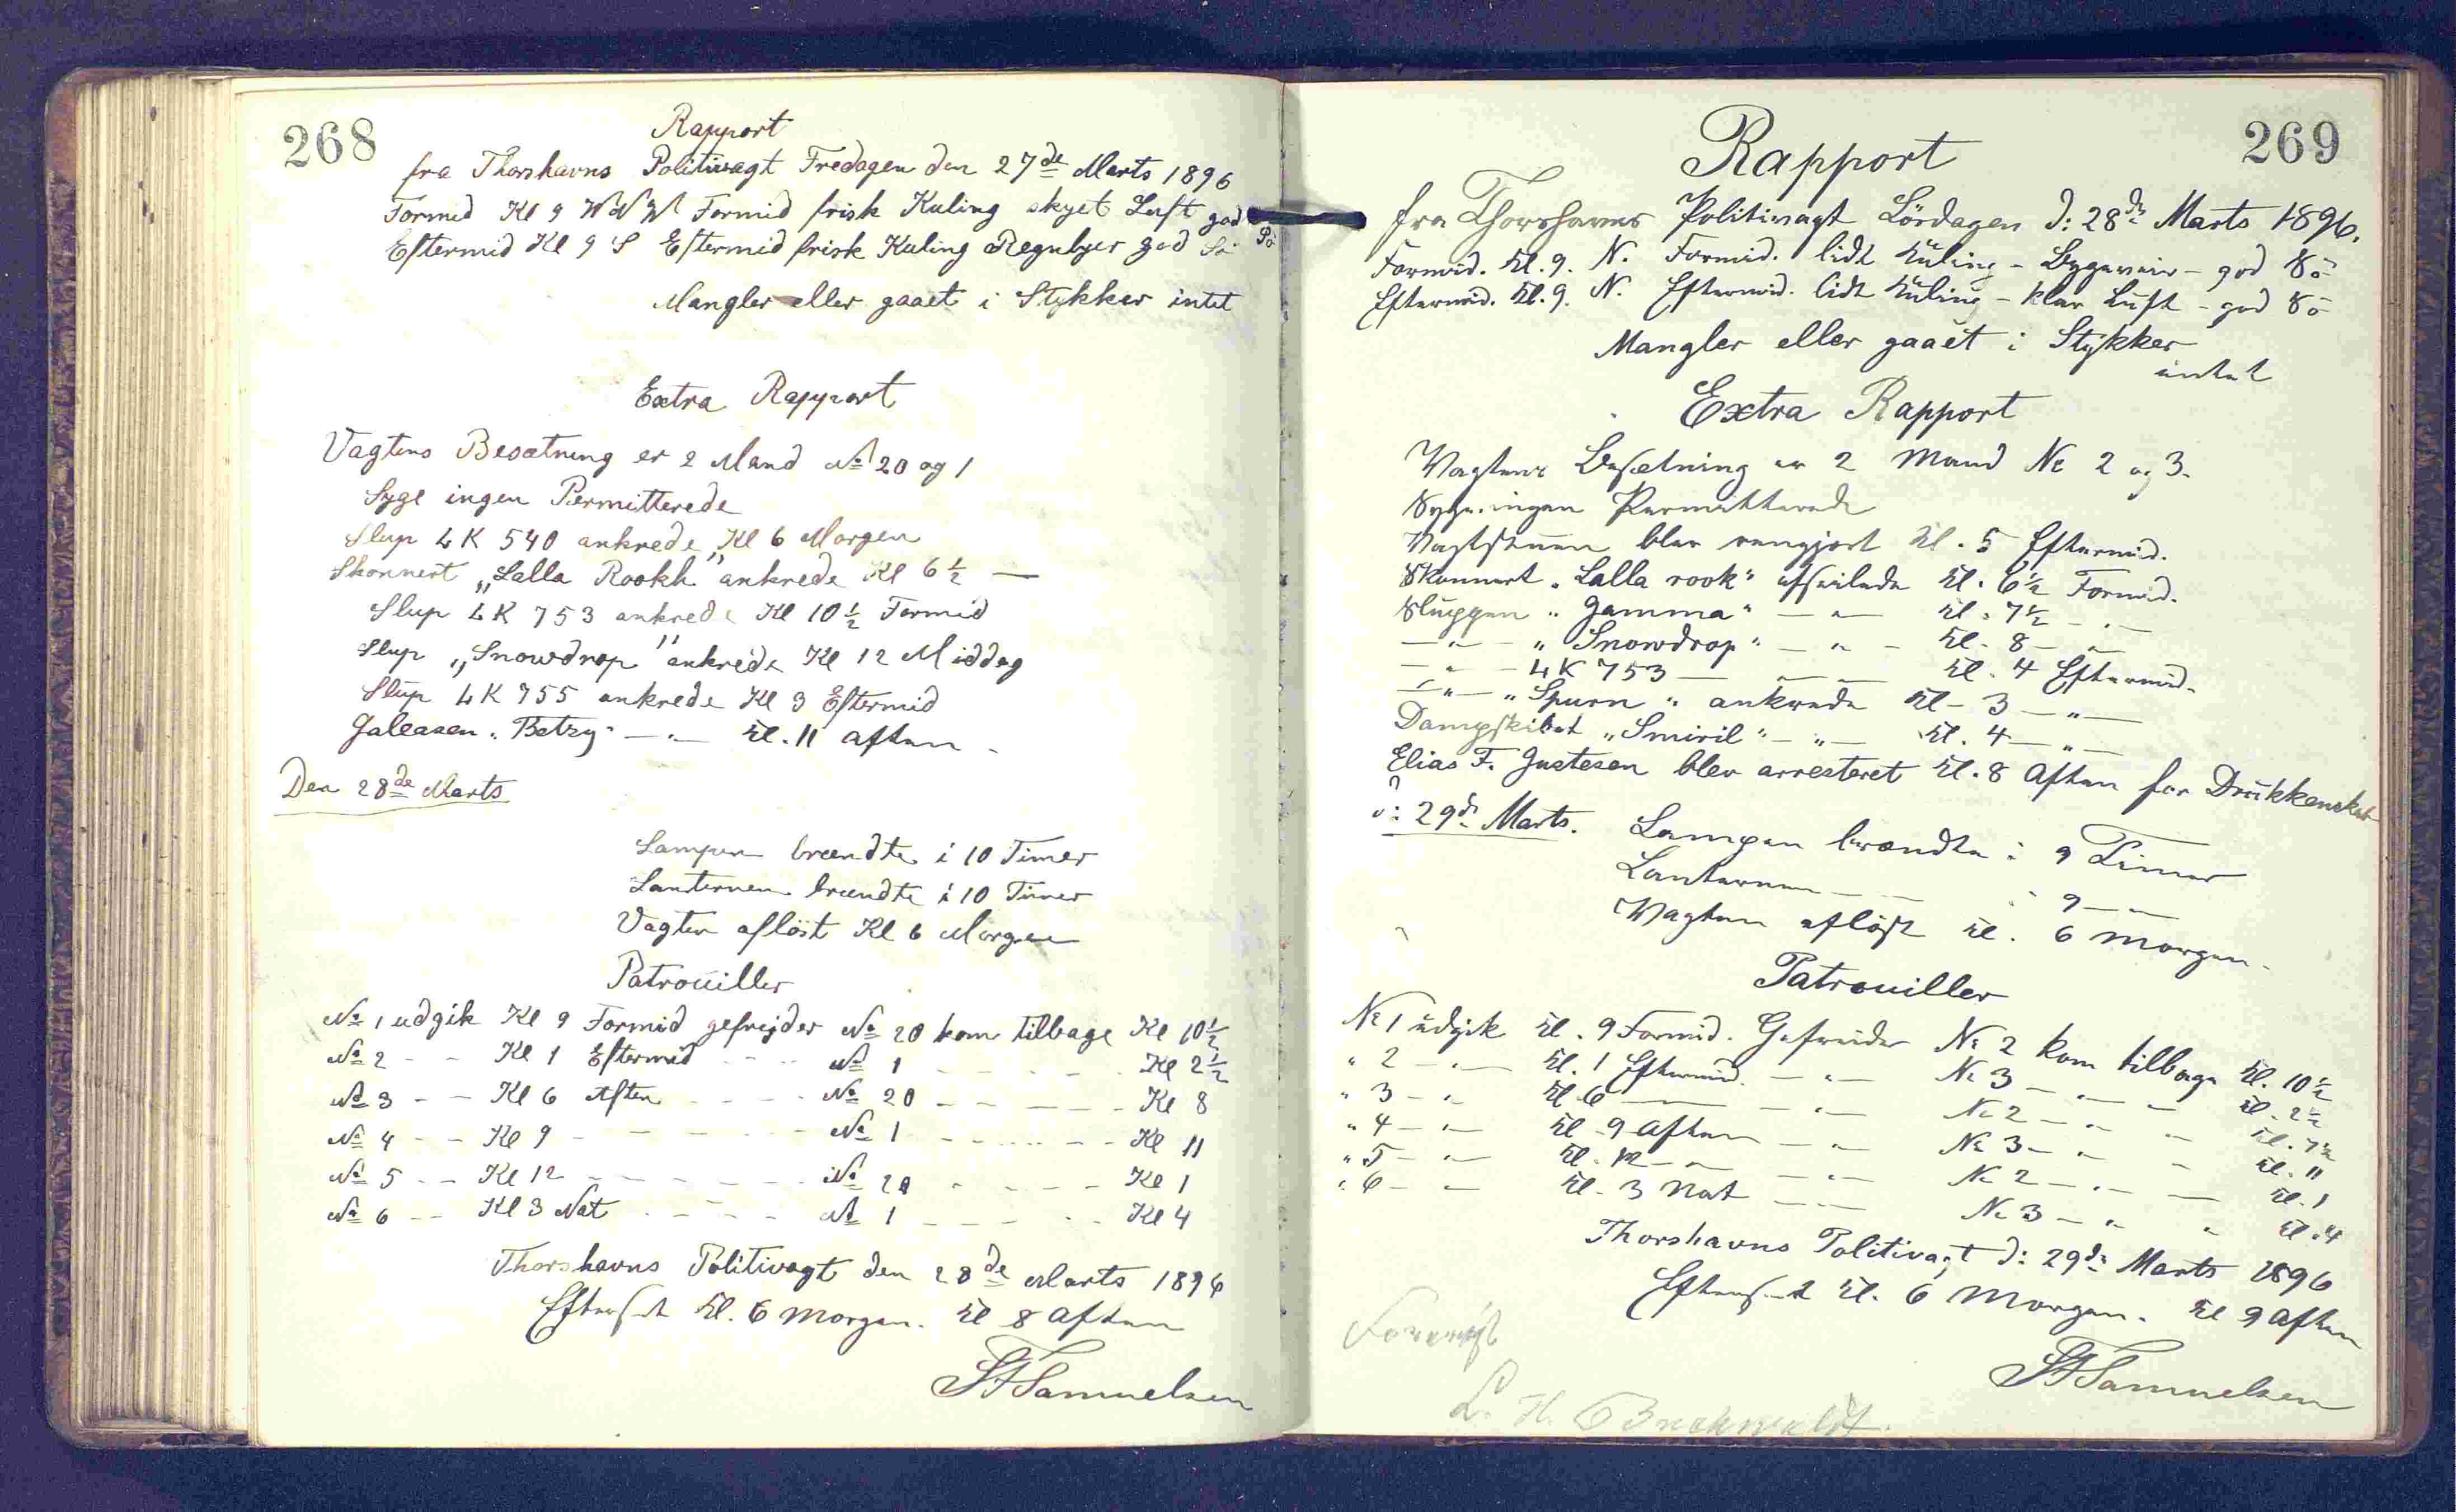 268
Rapport
fra Thorshavns Politivagt Fredagen den 27de Marts 1896
Formid Kl 9 WNW Formid frisk Kuling skyet Luft god Sö
Eftermid Kl 9 S Eftermid frisk Kuling Regnbyer god Sö
Mangler eller gaaet i Stykker intet
Extra Rapport
Vagtens Besætning er 2 Mand No 20 og 1
Syge ingen Permitterede
Slup LK 540 ankrede Kl 6 Morgen
Skonnert „Lalla Rookh" ankrede Kl 6½ —
Slup LK 753 ankrede Kl 10½ Formid
Slup „Snowdrop" ankrede Kl 12 Middag
Slup LK 755 ankrede Kl 3 Eftermid
Galeasen „Betzy" — " — Kl. 11 Aften -
Den 28de Marts
Lampen brændte i 10 Timer
Lanternen brændte i 10 Timer
Vagten aflöst Kl 6 Morgen
Patrouiller
No 1 udgik Kl 9 Formid gefrejder No 20 kom tilbage Kl 10½
No 2 - - Kl 1 Eftermid - - - - No 1 - - - - - Kl 2½
No 3 - - Kl 6 Aften - - - - No 20 - - - - - Kl 8
No 4 - - Kl 9 - - - - - No 1 - - - - - - Kl 11
No 5 - - Kl 12 - - - - - - No 20 - - - - Kl 1
No 6 - - Kl 3 Nat - - - - No 1 - - - - - Kl 4
Thorshavns Politivagt den 28de Marts 1896
Efterset Kl. 6 Morgen. Kl 8 Aften
Samuelsen
269
Rapport
fra Thorshavns Politivagt Lördagen d: 28de Marts 1896.
Formid. Kl. 9. N. Formid. lidt Kuling - Bygeveir - god Sö
Eftermid. Kl. 9. N. Eftermid. lidt Kuling - klar Luft - god Sö
Mangler eller gaaet i Stykker
intet
Extra Rapport
Vagtens Besætning er 2 Mand No 2 og 3.
Syge ingen Permitterede
Vagtstuen blev rengjort Kl. 5 Eftermid.
Skonnert „Lalla rook" afseilede Kl. 6½ Formid.
Sluppen „Gamma" — " — Kl. 7½ — " —
— " — „Snowdrop" — " — Kl. 8 — " —
— " — LK 753 — — — Kl. 4 Eftermid.
— " — „Spurn" ankrede Kl - 3 — " —
Dampskibet „Smiril" — " — Kl. 4 — " —
Elias F. Justesen blev arresteret Kl. 8 Aften for Drukkenskab
d: 29de Marts. Lampen brændte i 9 Timer
Lanternen — — " 9 — " —
Vagten aflöst Kl. 6 Morgen.
Patrouiller
No 1 udgik Kl. 9 Formid. Gefreider No 2 kom tilbage Kl. 10½
" 2 — " — Kl. 1 Eftermid. — " — No 3 — " — Kl. 2½
" 3 — " Kl 6 — — " — No 2 — " — Kl. 7½
" 4 — " — Kl - 9 Aften — " No 3 — " - Kl. 11
" 5 — " — Kl. 12 — " — " — No 2 — " — Kl. 1
" 6 — " Kl. 3 Nat — " — No 3 — " " Kl. 4
Thorshavns Politivagt d: 29de Marts 1896
Efterset Kl. 6 Morgen. Kl 9 Aften
Samuelsen
Forevist
L. H. Buchwaldt.